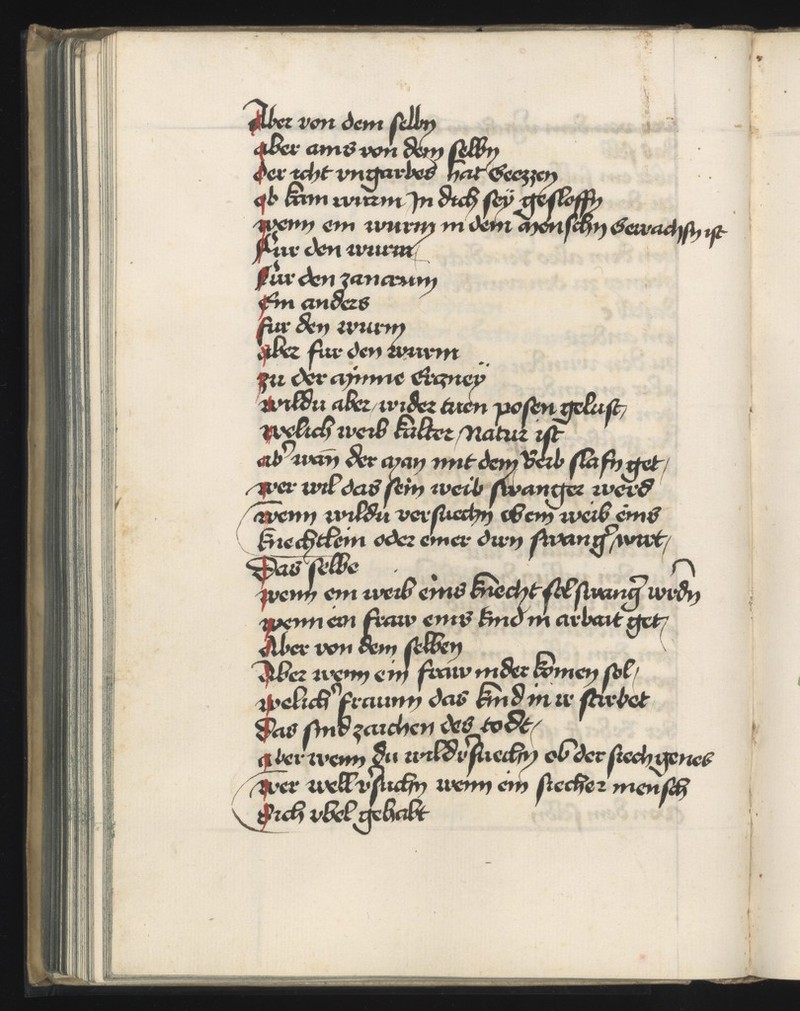 Aber von dem selbn
aber ains von dem selbn
der icht vngarbes hat Geezzen
ob kain wurm In dich sey gesloffn
wenn ein wurm in dem menschn Gewachsn ist
Fur den wurm
Fur den zanarum
Ein anders
fur den wurm
aber fur den wurm
zu der mynne Erzney
wildu aber wider tuen posen gelust
welich weib kalter Natur ist
ab' wan der man mit dem Weib slafn get
wer wil das sein weib swanger werd
wenn wildu versuechn ob ein weib eins
knechtlein oder einer dirn swang' wirt
Das selbe
wenn ein weib eins knecht sol swang' wrdn
wenn ein fraw eins kind in arbait get
Aber von dem selben
Aber wenn ein fraw nider komen sol
welich' frawnn das kind in ir starbet
Das sind zaichen des todt
aber wenn du wild v'suechn ob der siech genes
wer well v'suchn wenn ein siecher mensch
sich vbel gehabt